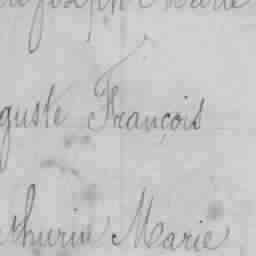 Joseph Marie
guste François
thurin Marie